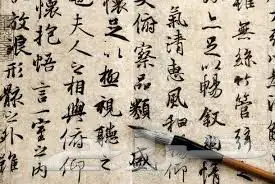 無絲竹管弦之
足以暢敘幽情
氣清惠風和暢仰
俯察品類盛
懷足以極視聽之
也夫人之相與俯仰
懷抱悟言一室之內
放浪形骸之外雖